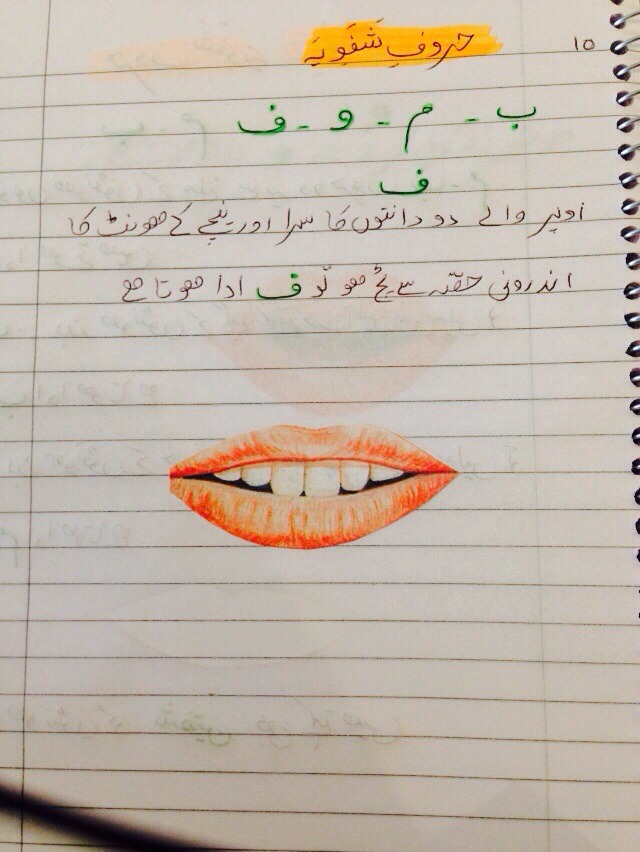 10 حروفِ شَفَوِیَہ
ب - م - و - ف
ف
اوپر والے دو دانتوں کا سرا اور نیچے کے ھونٹ کا
اندرونی حصّہ سے ھو تو ف ادا ھوتا ھے